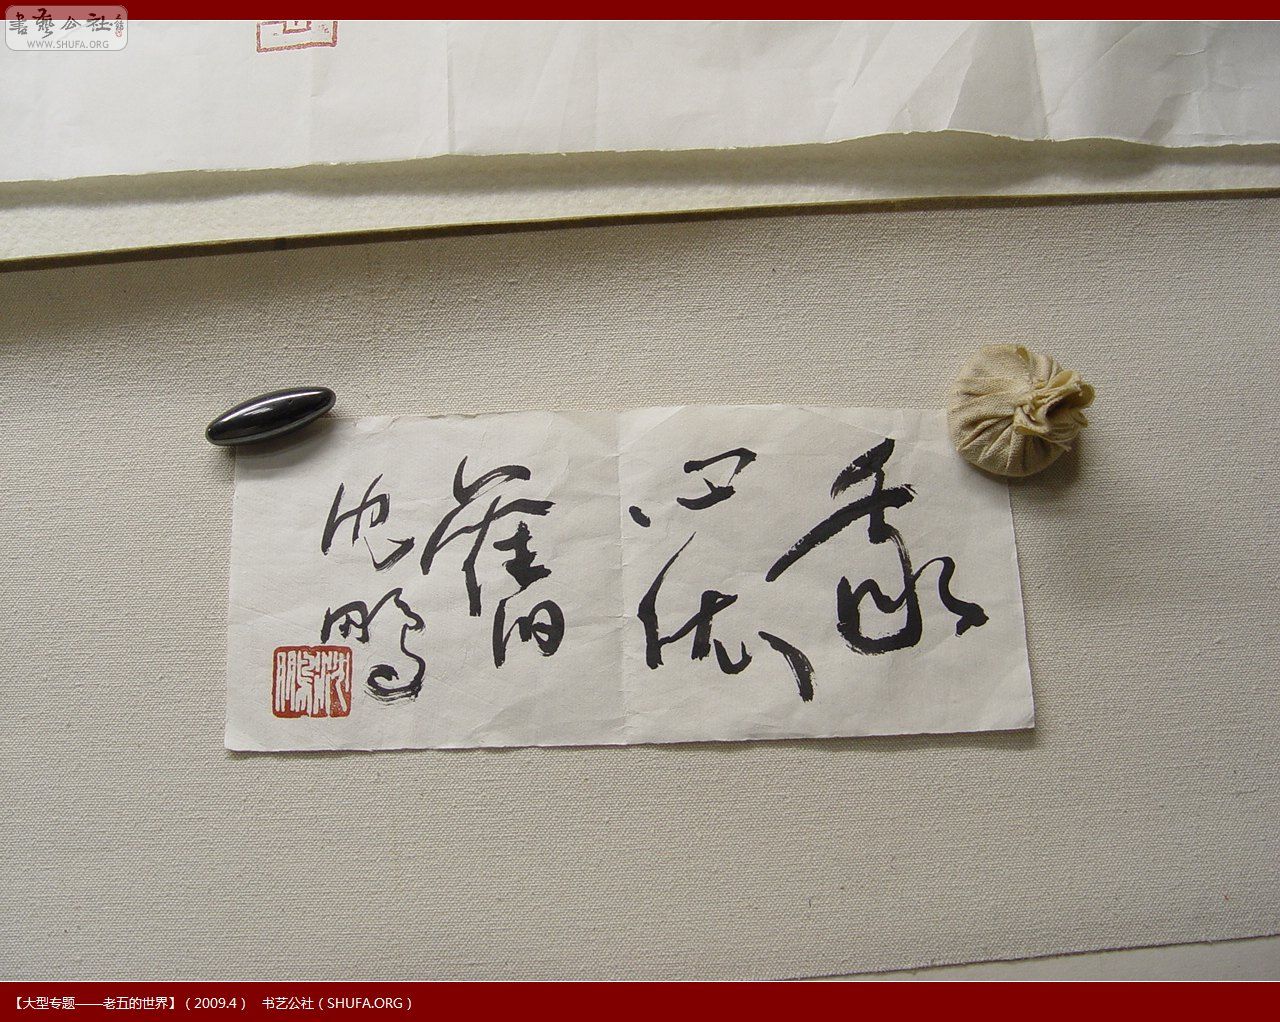 書藝公社
WWW.SHUFA.ORG
依
舊
沈鵬
沈鵬
【大型专题——老五的世界】（2009.4） 书艺公社（SHUFA.ORG）